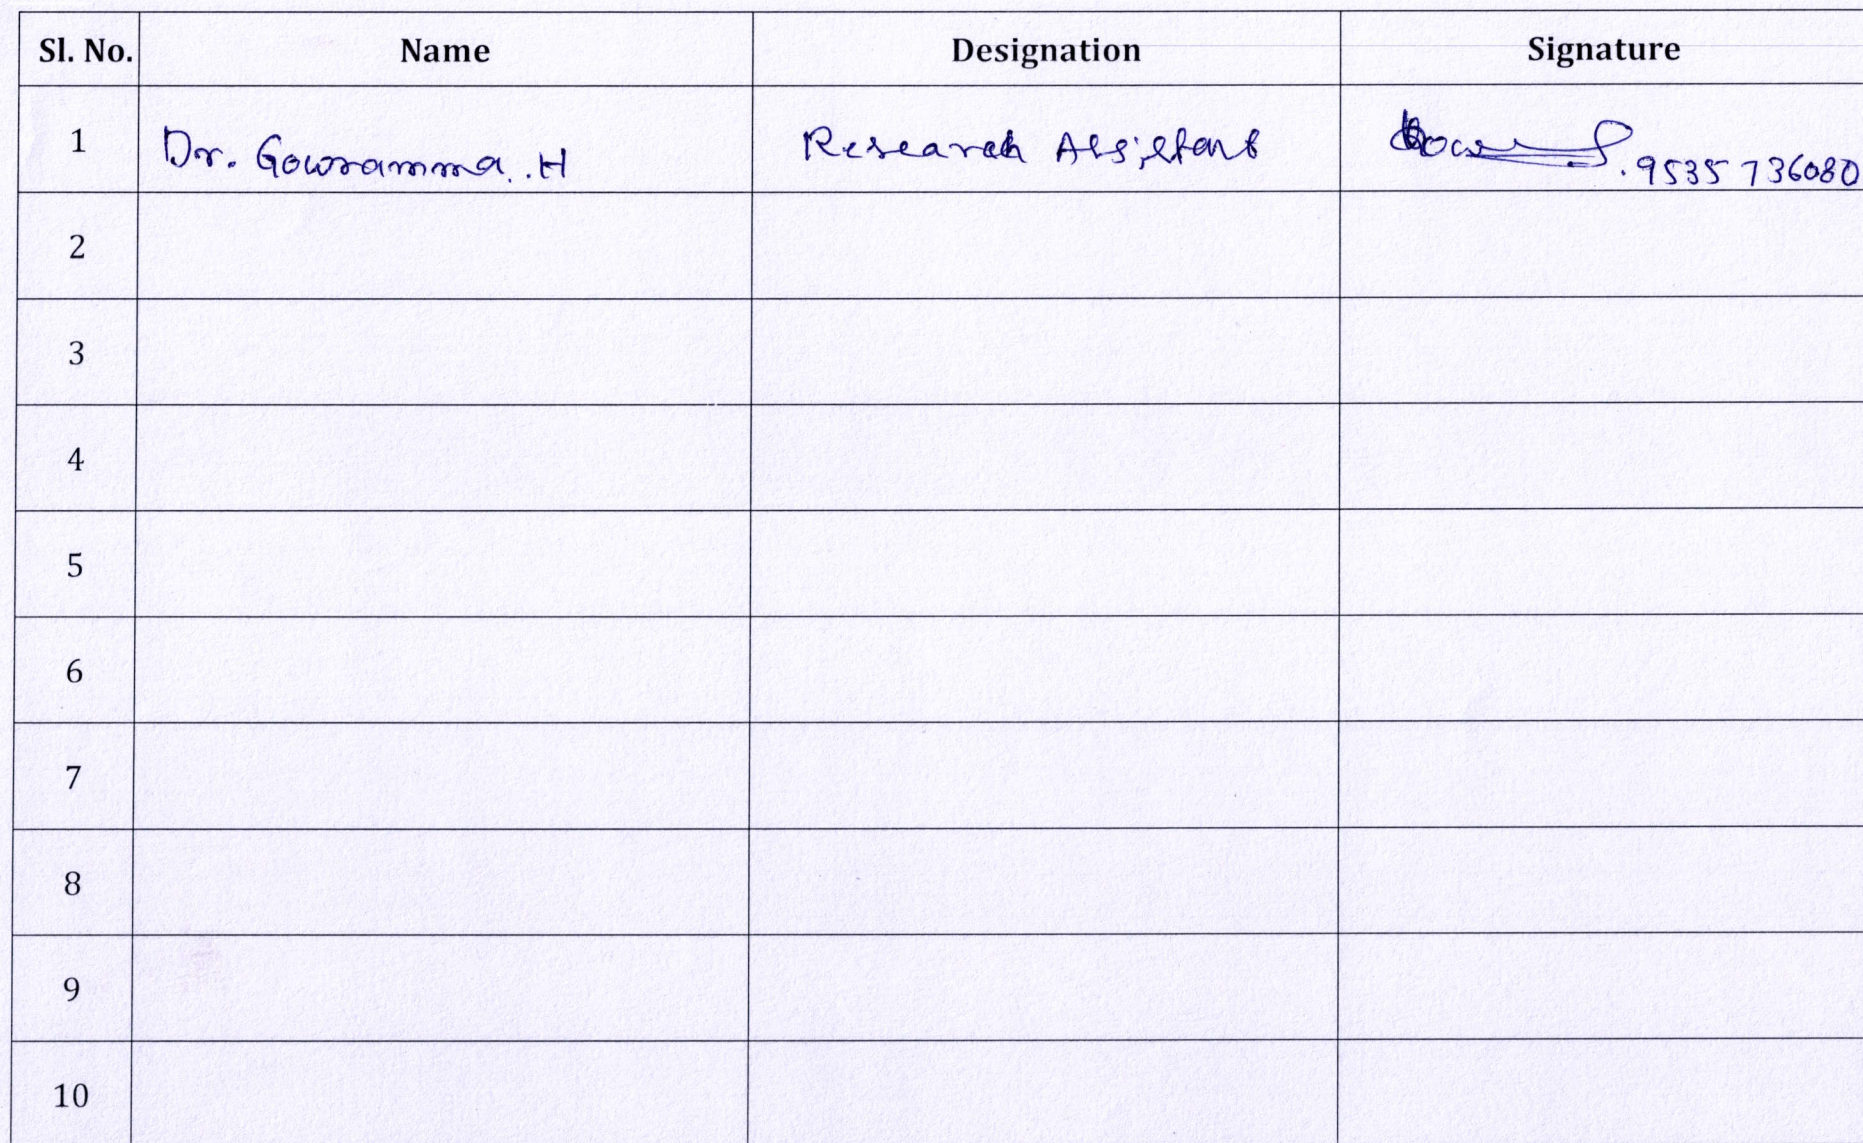 Sl. No. Name Designation Signature
1 Dr. Gowramma. .H Research Assistant .9535 736080
2
3
4
5
6
7
8
9
10